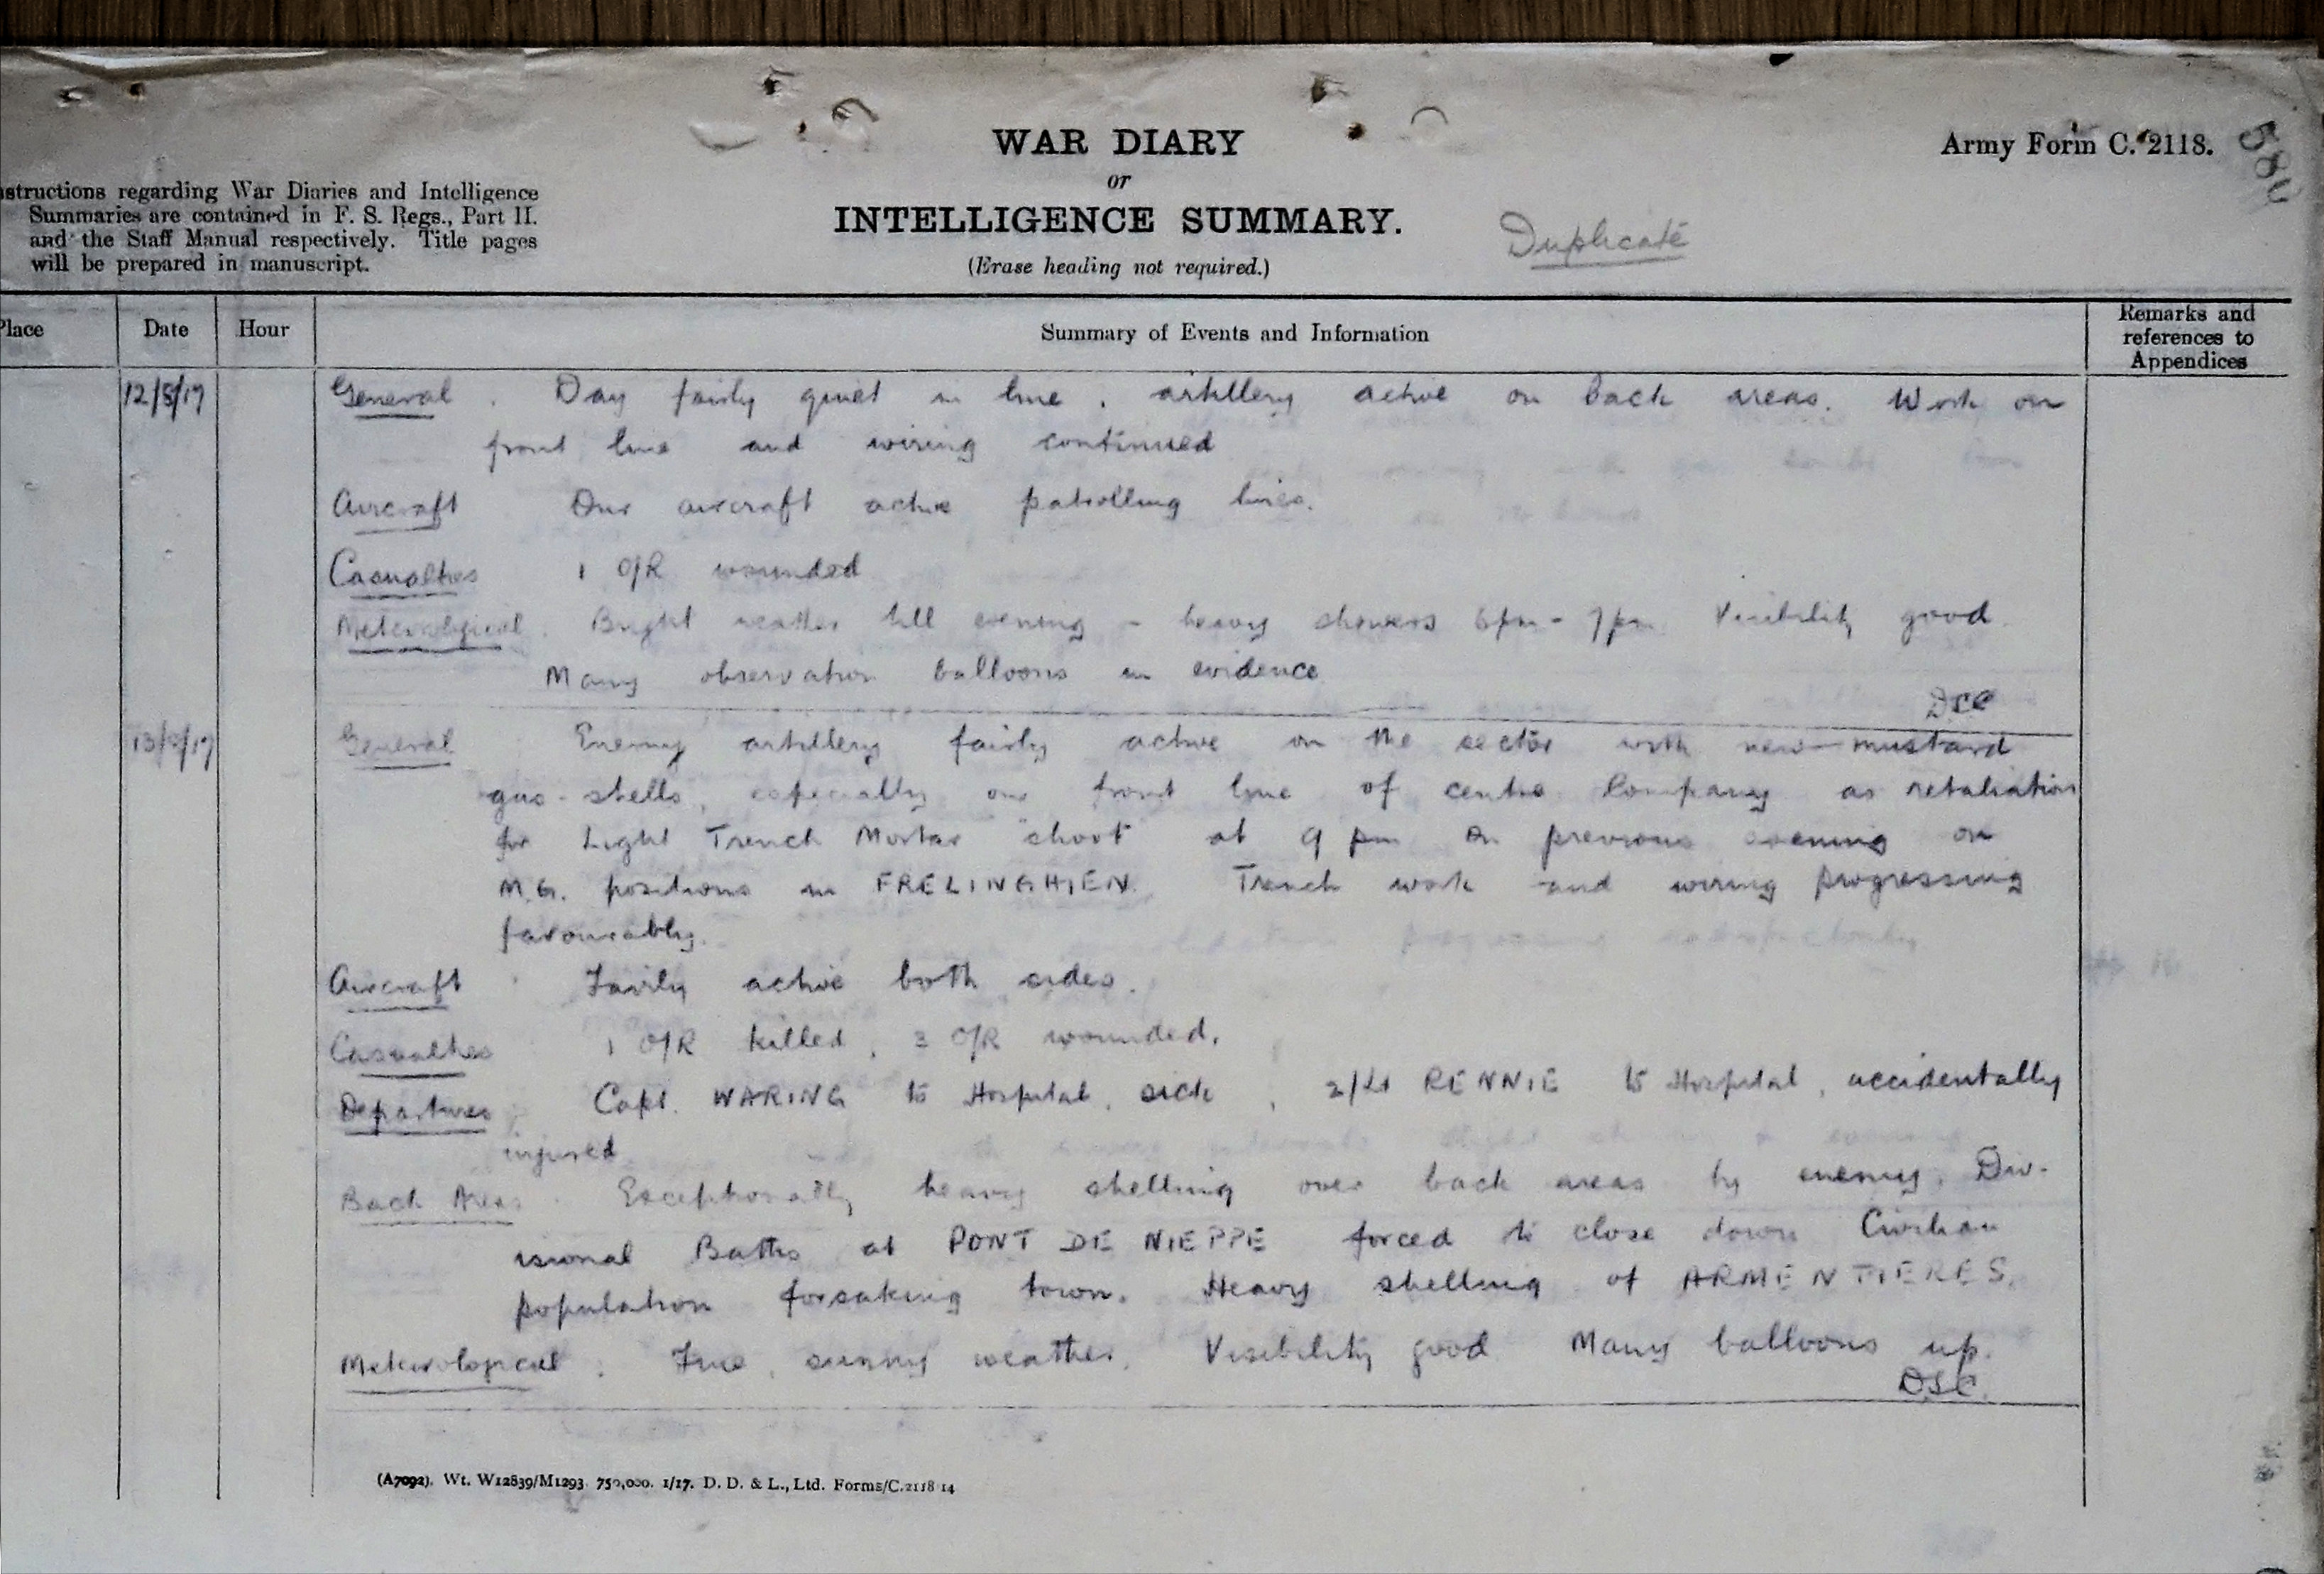 WAR DIARY
or
INTELLIGENCE SUMMARY.
(Erase heading not required.)
Army Form C. 2118.
580
Duplicate
nstructions regarding War Diaries and Intelligence
Summaries are contained in F. S. Regs., Part II.
and the Staff Manual respectively. Title pages
will be prepared in manuscript.
Place
Date
Hour
Summary of Events and Information
Remarks and
references to
Appendices
12/8/17 General. Day fairly quiet in line, artillery active on back areas. Work on
front line and wiring continued
Aircraft Our aircraft active patrolling lines.
Casualties 1 O/R wounded
Meterological. Bright weather till evening - heavy showers 6pm - 7pm Visibility good.
Many observation balloons in evidence
13/8/17 General Enemy artillery fairly active on the sector with new mustard
gas-shells, especially our front line of centre Company as retaliation
for Light Trench Mortar "shoot" at 9 pm on previous evening on
M.G. positions in FRELINGHIEN. Trench work and wiring progressing
favourably.
Aircraft Fairly active both sides.
Casualties 1 O/R killed, 3 O/R wounded.
Departures Capt. WARING to Hospital, sick, 2/Lt RENNIE to Hospital, accidentally
injured
Back Areas. Exceptionally heavy shelling over back areas by enemy. Div-
isional Baths at PONT DE NIEPPE forced to close down Civilian
population forsaking town. Heavy shelling of ARMENTIERES.
Meterological. Fine, sunny weather. Visibility good Many balloons up.
DSC.
(A7092). Wt. W12839/M1293. 750,000. 1/17. D. D. & L., Ltd. Forms/C.2118/14